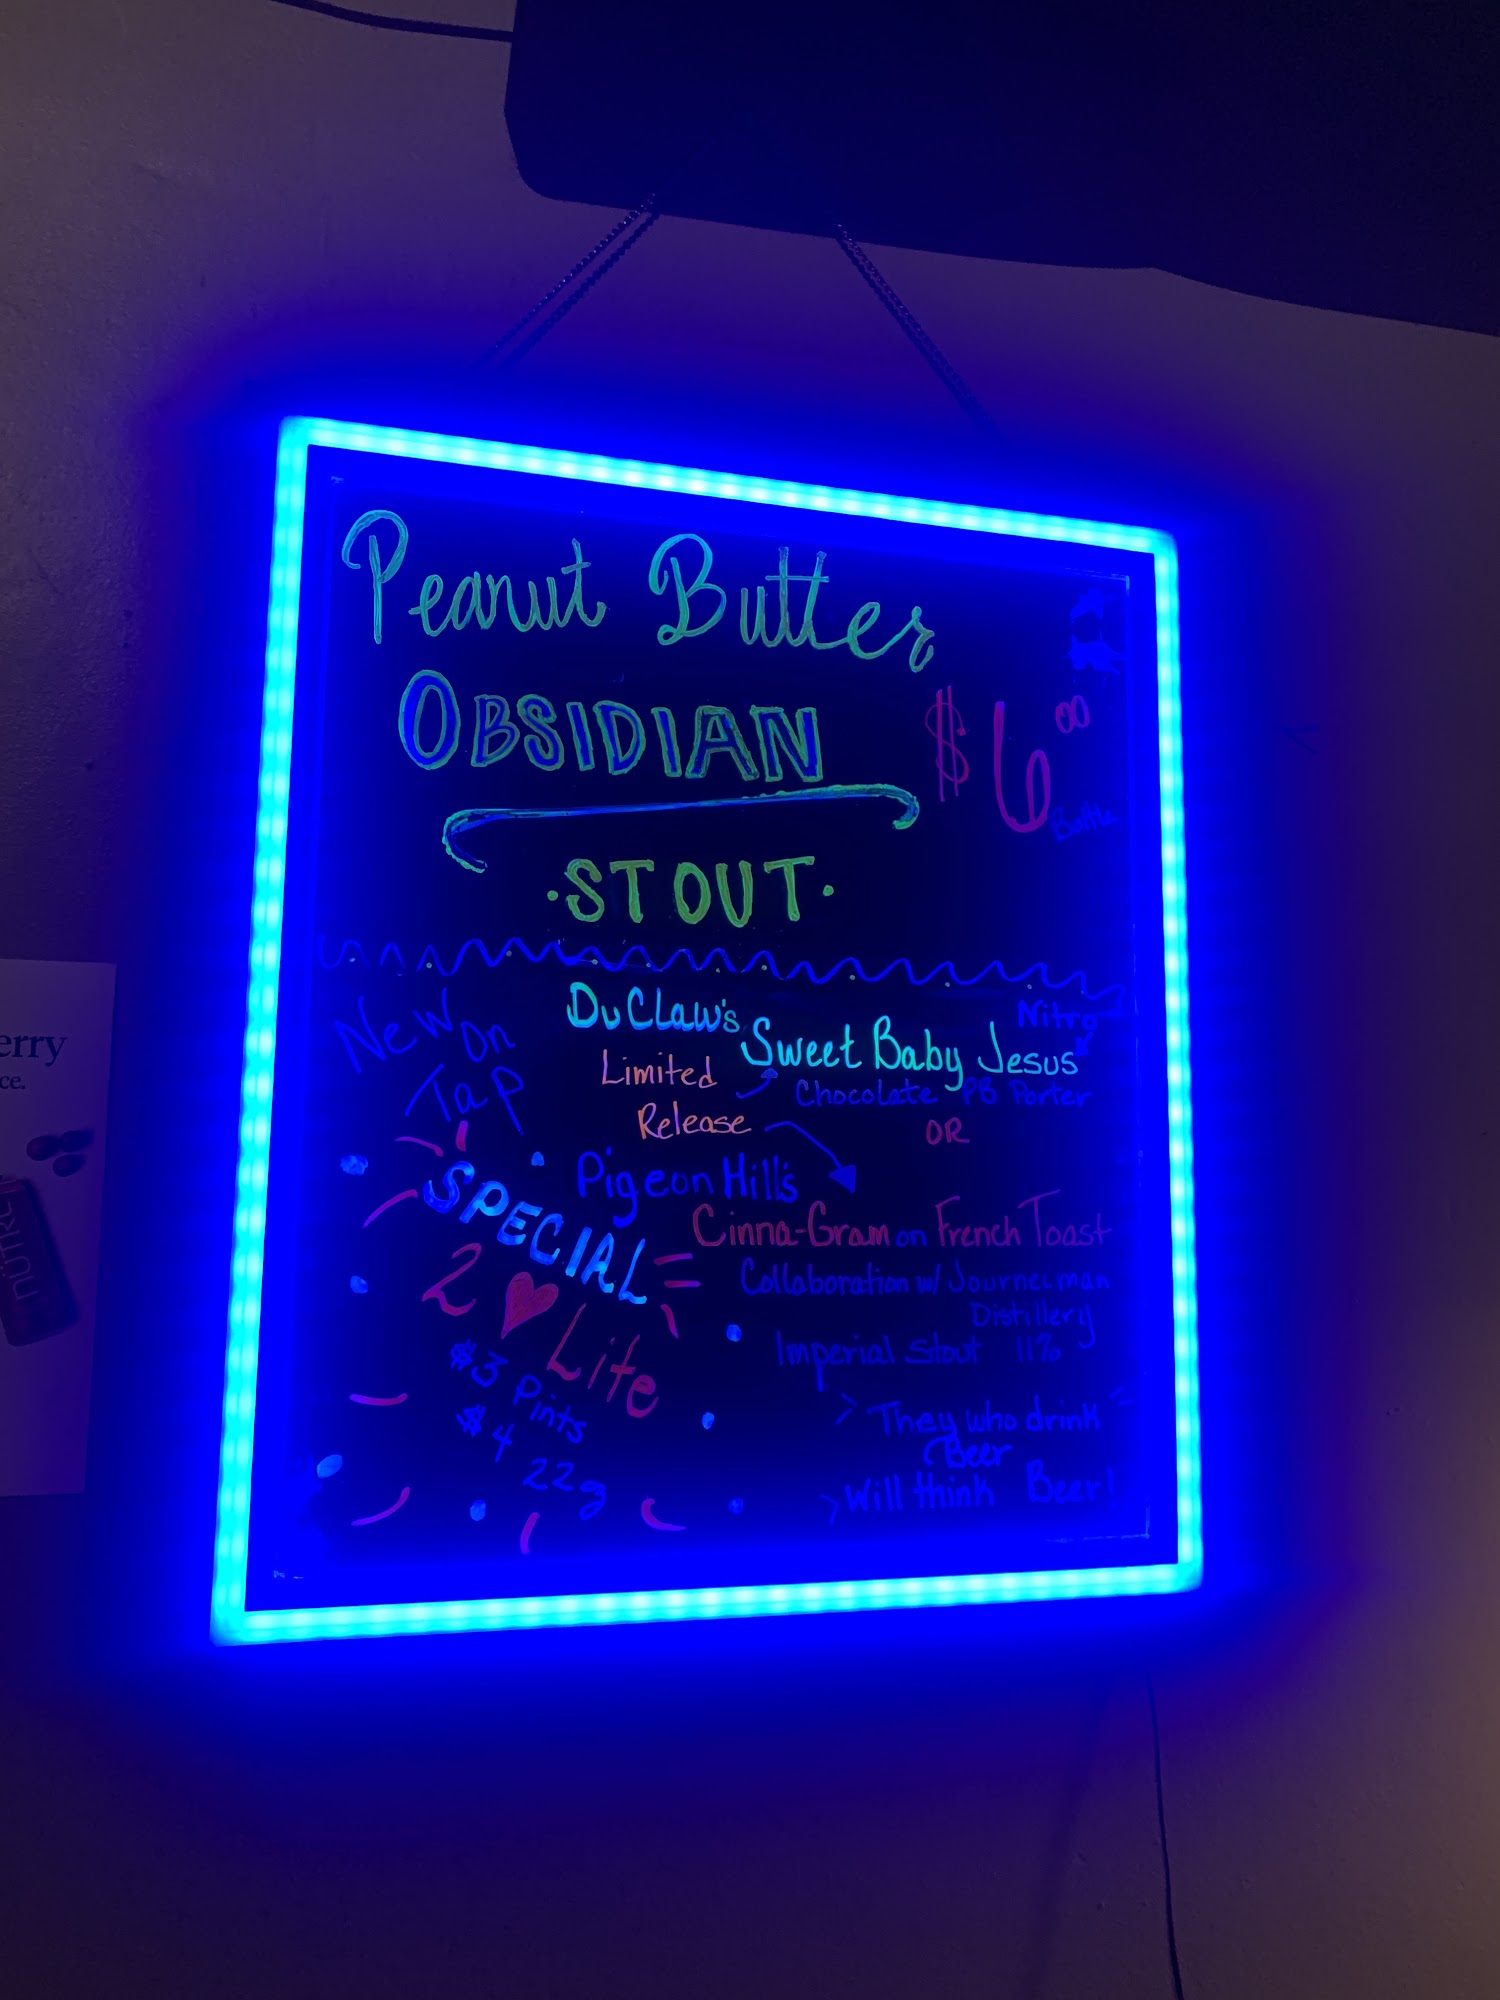 Peanut Butter
OBSIDIAN
$6.00
Bottle
·STOUT·
New on
Tap
DuClaw's
Nitro
Sweet Baby Jesus
Chocolate PB Porter
Limited
Release
OR
Pigeon Hill's
Cinna-Gram on French Toast
Collaboration w/ Journeyman
Distillery
Imperial Stout 11%
SPECIAL
2 ♥ Lite
$3 Pints
$4 22g
They who drink
Beer
Will think Beer!
erry
ce.